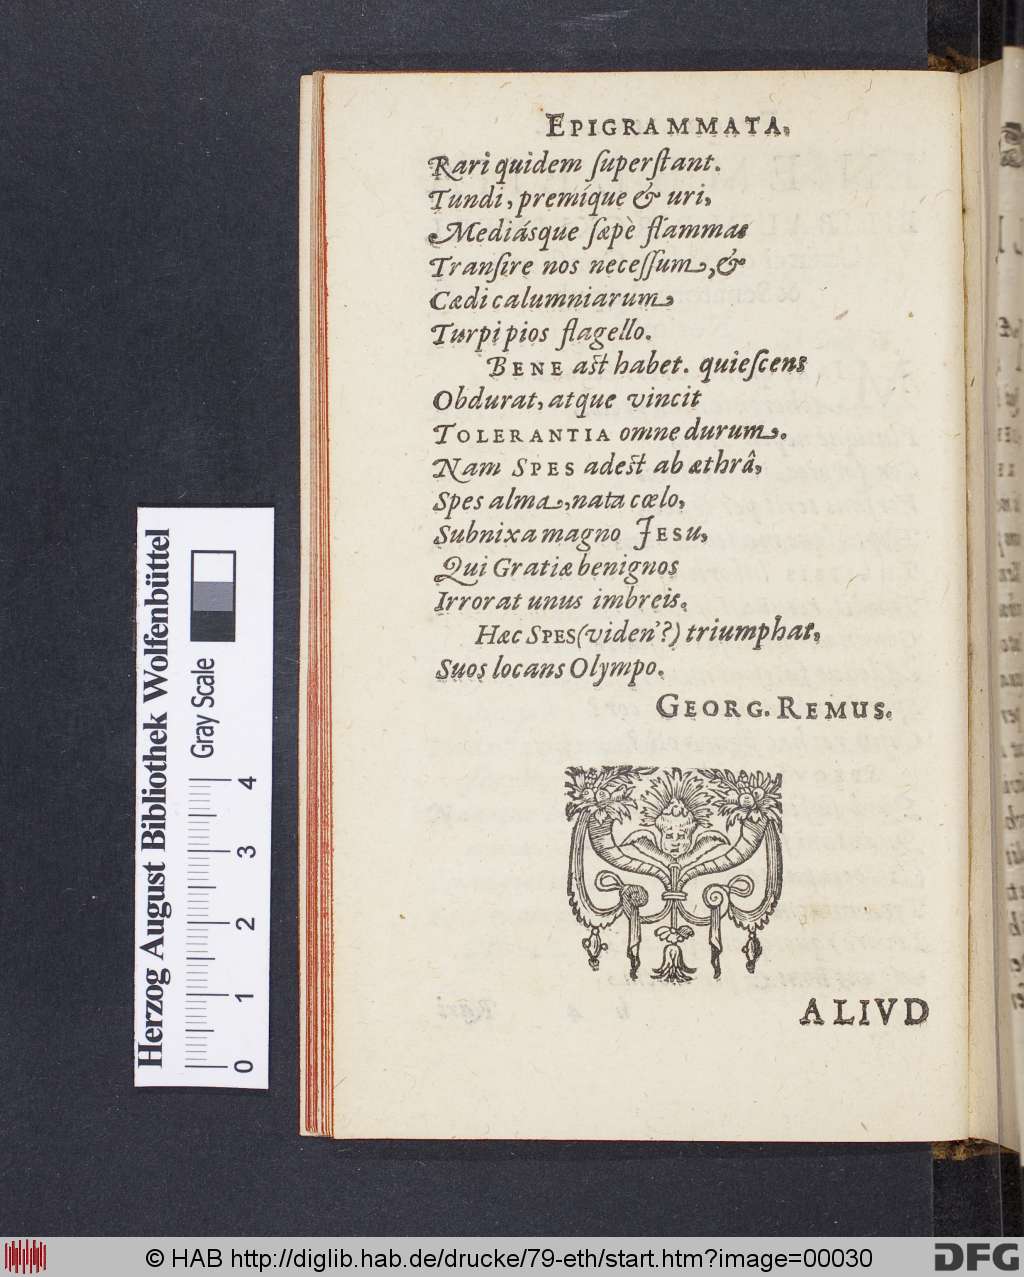 EPIGRAMMATA.
Rari quidem ſuperſtant.
Tundi, premíque & uri,
Mediásque ſæpè flammas
Tranſire nos neceſſum, &
Cædi calumniarum
Turpi pios flagello.
BENE aſt habet. quieſcens
Obdurat, atque vincit
TOLERANTIA omne durum.
Nam SPES adeſt ab æthrâ,
Spes alma, nata cœlo,
Subnixa magno JESU,
Qui Gratiæ benignos
Irrorat unus imbreis.
Hæc SPES (viden'?) triumphat,
Suos locans Olympo.
GEORG. REMUS.
ALIVD
Herzog August Bibliothek Wolfenbüttel
Gray Scale
0 1 2 3 4
© HAB http://diglib.hab.de/drucke/79-eth/start.htm?image=00030
DFG